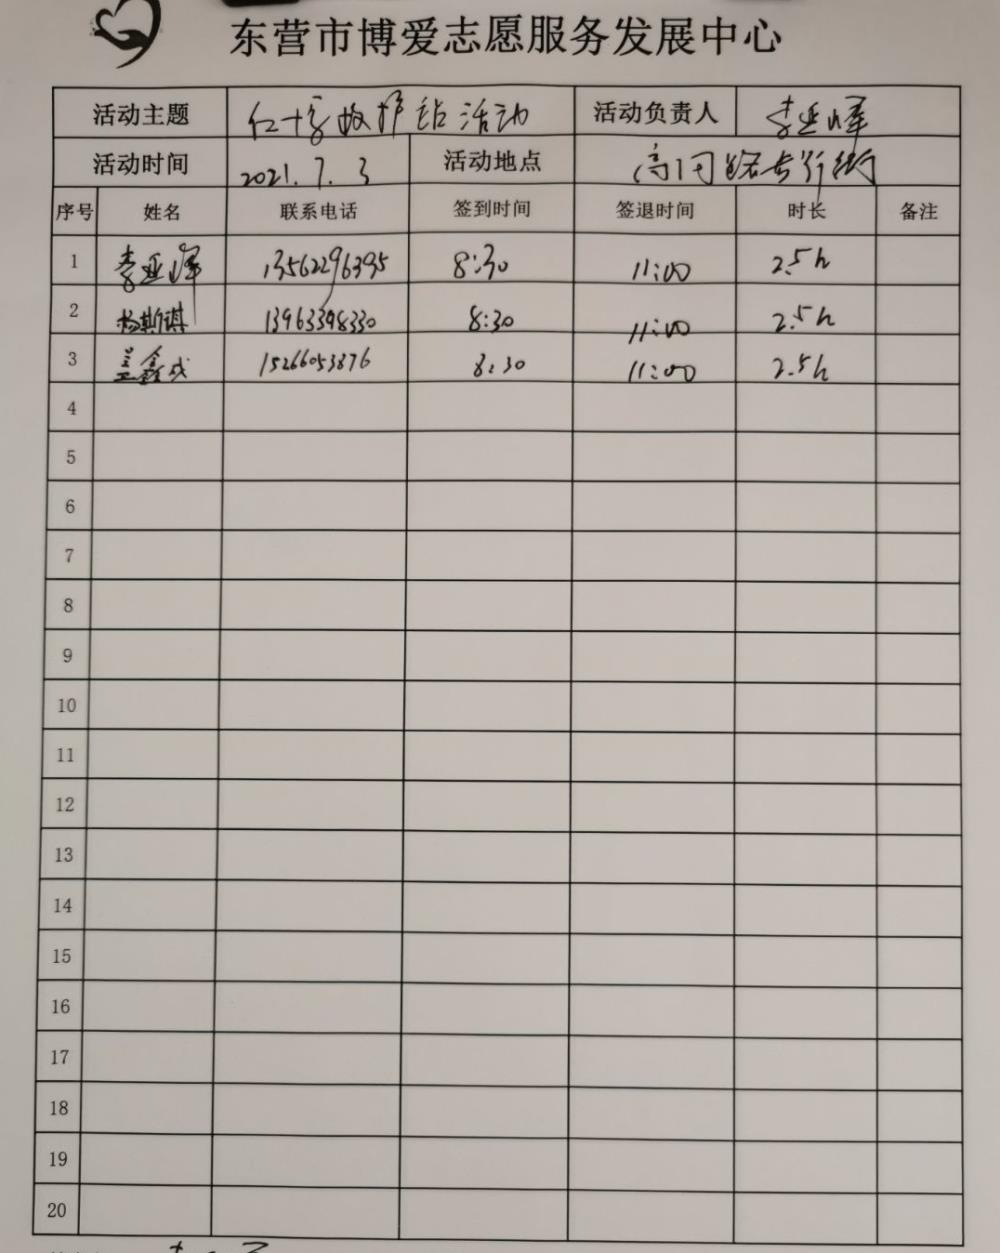 东营市博爱志愿服务发展中心
活动主题 红十字救护站活动 活动负责人 李亚峰
活动时间 2021.7.3 活动地点 步行街
序号 姓名 联系电话 签到时间 签退时间 时长 备注
1 李亚峰 13562296395 8:30 11:00 2.5h
2 杨斯琪 13963398330 8:30 11:00 2.5h
3 盖鑫成 15266053876 8:30 11:00 2.5h
4
5
6
7
8
9
10
11
12
13
14
15
16
17
18
19
20